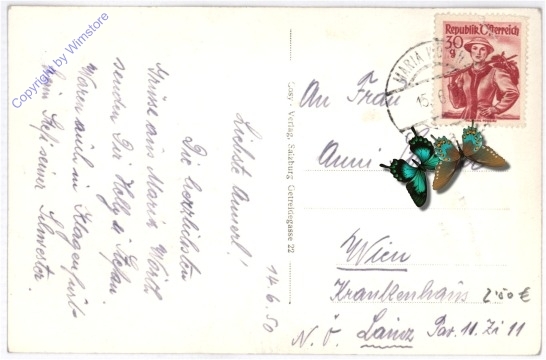 Copyright by Wimstore
14.6.50
Liebste Annerl!
Die herzlichsten
Grüsse aus Maria Wörth
senden Dir Helly u Stefan
Waren auch in Klagenfurt
beim Stef seiner
Cosy-Verlag, Salzburg Getreidegasse 22
Republik Österreich
30 g
MARIA WÖ
15. 6
An Frau
Anni
Wien
Krankenhaus
N. Ö. Lainz Pav. 11. Zi 11
2'00 €